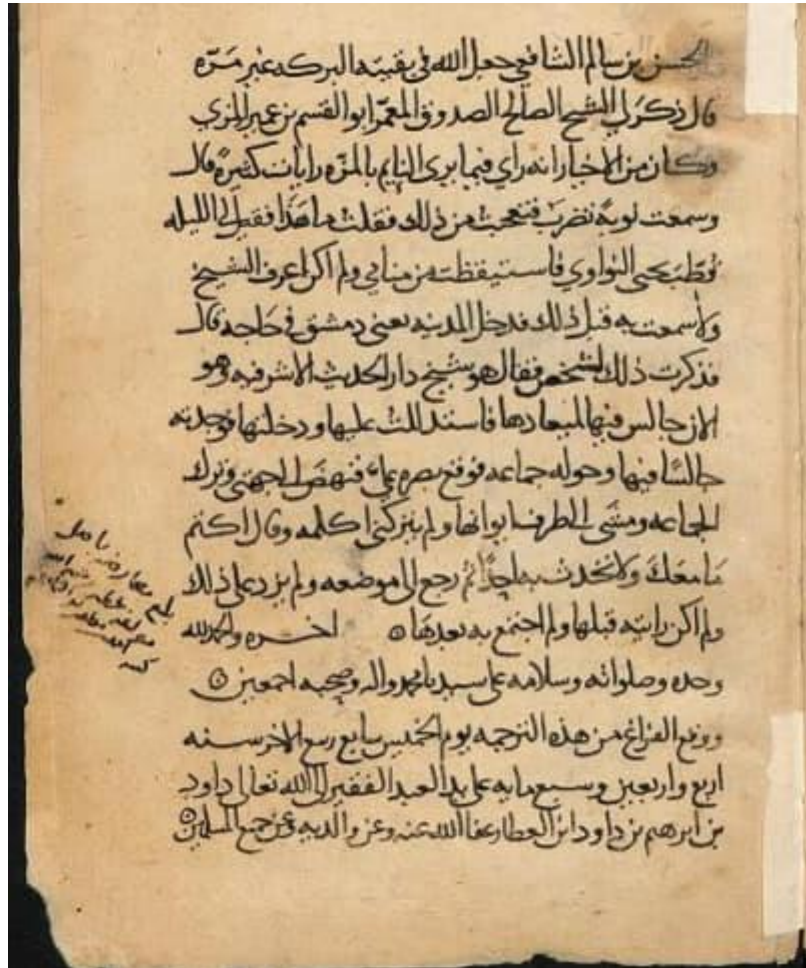 الحسن بن سالم الشافعي جعل الله في بقيته البركه غير مَرّه
قال ذكرَ لي الشيخ الصالح الصدوق المعمّر ابو القسم بن عمير المزي
وكان من الاخيار انه راي فيما يرى النايم بالمزّه رايات كثيرةً قال
وسمعت نوبةً تضرب فتعجبت من ذلك فقلت ما هَذا فقيل لي الليله
قُطّبَ يحيى النواوي فاستيقظت من منامي ولم اكن اعرف الشيخ
ولا سمعت به قبل ذلك فدخل المدينه يعني دمشق في حَاجه قال
فذكرت ذلك لشخص فقال هو شيخ دار الحديث الاشرفيه وهو
الان جالس فيها لميعادها فاستدللت عليها ودخلتها فوجدته
جالسًا فيها وحوله جماعه فوقع بصره عليّ فنهضَ الى جهتي وترك
الجماعه ومشى الى طرف ايوانها ولم يتركني اكلمه وقال اكتم
مَا معَكَ ولا تحدث به احدًا ثم رجع الى موضعه ولم يزد على ذلك
ولم اكن رايته قبلها ولم اجتمع به بعدهَا ه اخره والحمد لله
وحده وصلواته وسلامه على سيدنا محمد واله وصحبه اجمعين
ووقع الفراغ من هذه الترجمه يوم الخميس سابع ربيع الاخر سنه
اربع واربعين وسبع مايه على يد العبد الفقير الى الله تعالى داود
بن ابرهيم بن داود ابن العطار عفا الله عنه وعن والديه وعن جميع المسلمين